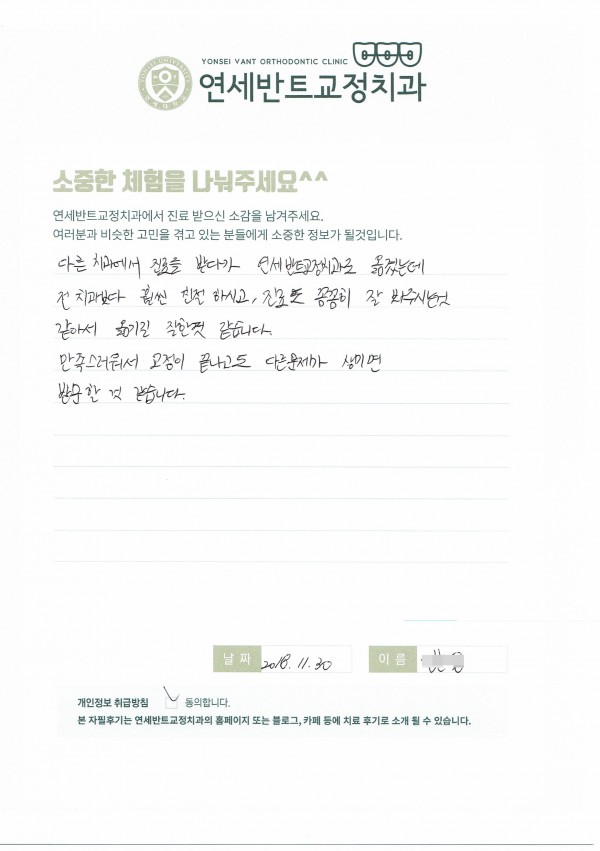 YONSEI VANT ORTHODONTIC CLINIC
연세반트교정치과
소중한 체험을 나눠주세요^^
연세반트교정치과에서 진료 받으신 소감을 남겨주세요.
여러분과 비슷한 고민을 겪고 있는 분들에게 소중한 정보가 될것입니다.
다른 치과에서 진료를 받다가 연세반트교정치과로 옮겼는데
전 치과보다 훨씬 친절 하시고, 진료도 꼼꼼히 잘 봐주시는것
같아서 옮기길 잘한것 같습니다.
만족스러워서 교정이 끝나고도 다른문제가 생기면
방문할 것 같습니다.
날 짜 2018. 11. 30 이 름
개인정보 취급방침 동의합니다.
본 자필후기는 연세반트교정치과의 홈페이지 또는 블로그, 카페 등에 치료 후기로 소개 될 수 있습니다.